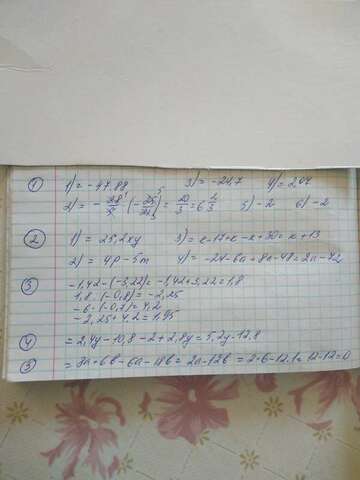 ① 1) = -47.88 3) = -24,7 4) = 2,04
2) = - 28/5 · (- 25/21) = 20/3 = 6 2/3 5) -2 6) -2
② 1) = 25,2xy 3) = к-17+к-к+30 = к+13
2) = 4p-5m 4) = -24-6a+8a-48 = 2a-72
③ -1,42-(-3,22) = -1,42+3,22 = 1,8
1,8 : (-0,8) = -2,25
-6 · (-0,7) = 4,2
-2,25+4,2 = 1,95
④ = 2,4y-10,8-2+2,8y = 5,2y-12,8
⑤ = 8a+6b-6a-18b = 2a-12b = 2·6-12·1 = 12-12 = 0